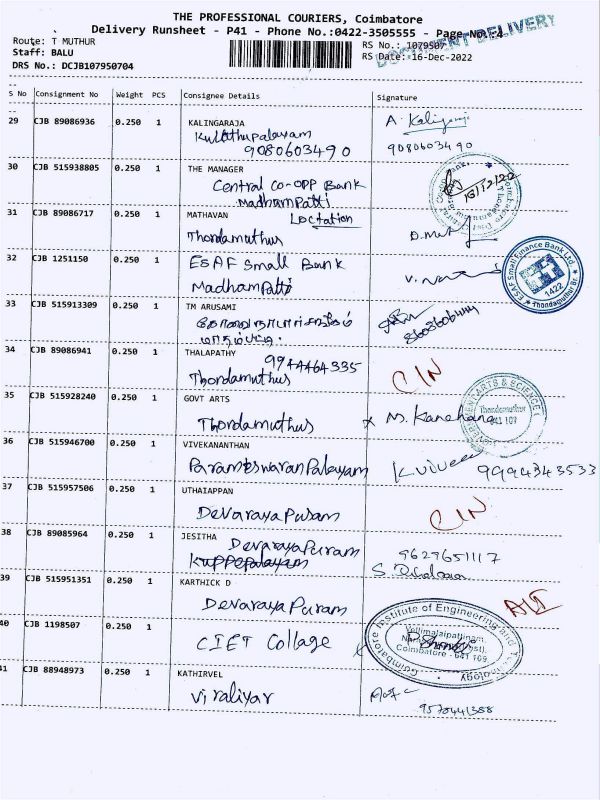 THE PROFESSIONAL COURIERS, Coimbatore
Delivery Runsheet - P41 - Phone No.:0422-3505555 - Page No.:4
DOCUMENT DELIVERY
Route: T MUTHUR
Staff: BALU
DRS No.: DCJB107950704
RS No.: 1079507
RS Date: 16-Dec-2022
S No Consignment No Weight PCS Consignee Details Signature
29 CJB 89086936 0.250 1 KALINGARAJA
Kulathupalayam
9080603490
A. Kalingaraja
9080603490
30 CJB 515938805 0.250 1 THE MANAGER
Central Co-opp Bank
Madhampatti
16/12/22
31 CJB 89086717 0.250 1 MATHAVAN
Loctation
Thondamuthus
32 CJB 1251150 0.250 1 ESAF Small Bank
Madhampatti
ESAF Small Finance Bank Ltd.
1422
Thondamuthur Br.
33 CJB 515913309 0.250 1 TM ARUSAMI
34 CJB 89086941 0.250 1 THALAPATHY
9944464335
Thondamuthus
C/N
35 CJB 515928240 0.250 1 GOVT ARTS
Thondamuthus
x M. Kanchana
ARTS & SCIENCE
Thondamuthur
641 107
36 CJB 515946700 0.250 1 VIVEKANANTHAN
Parameswaran Palayam
9994343533
37 CJB 515957506 0.250 1 UTHAIAPPAN
Devaraya Puram
C/N
38 CJB 89085964 0.250 1 JESITHA
Devaraya Puram
Kuppepalayam
9629651117
39 CJB 515951351 0.250 1 KARTHICK D
Devaraya Puram
40 CJB 1198507 0.250 1 CIET Collage
Coimbatore Institute of Engineering and Technology
Vellimalaipattinam,
Coimbatore - 641 109
41 CJB 88948973 0.250 1 KATHIRVEL
Viraliyar
9570441388